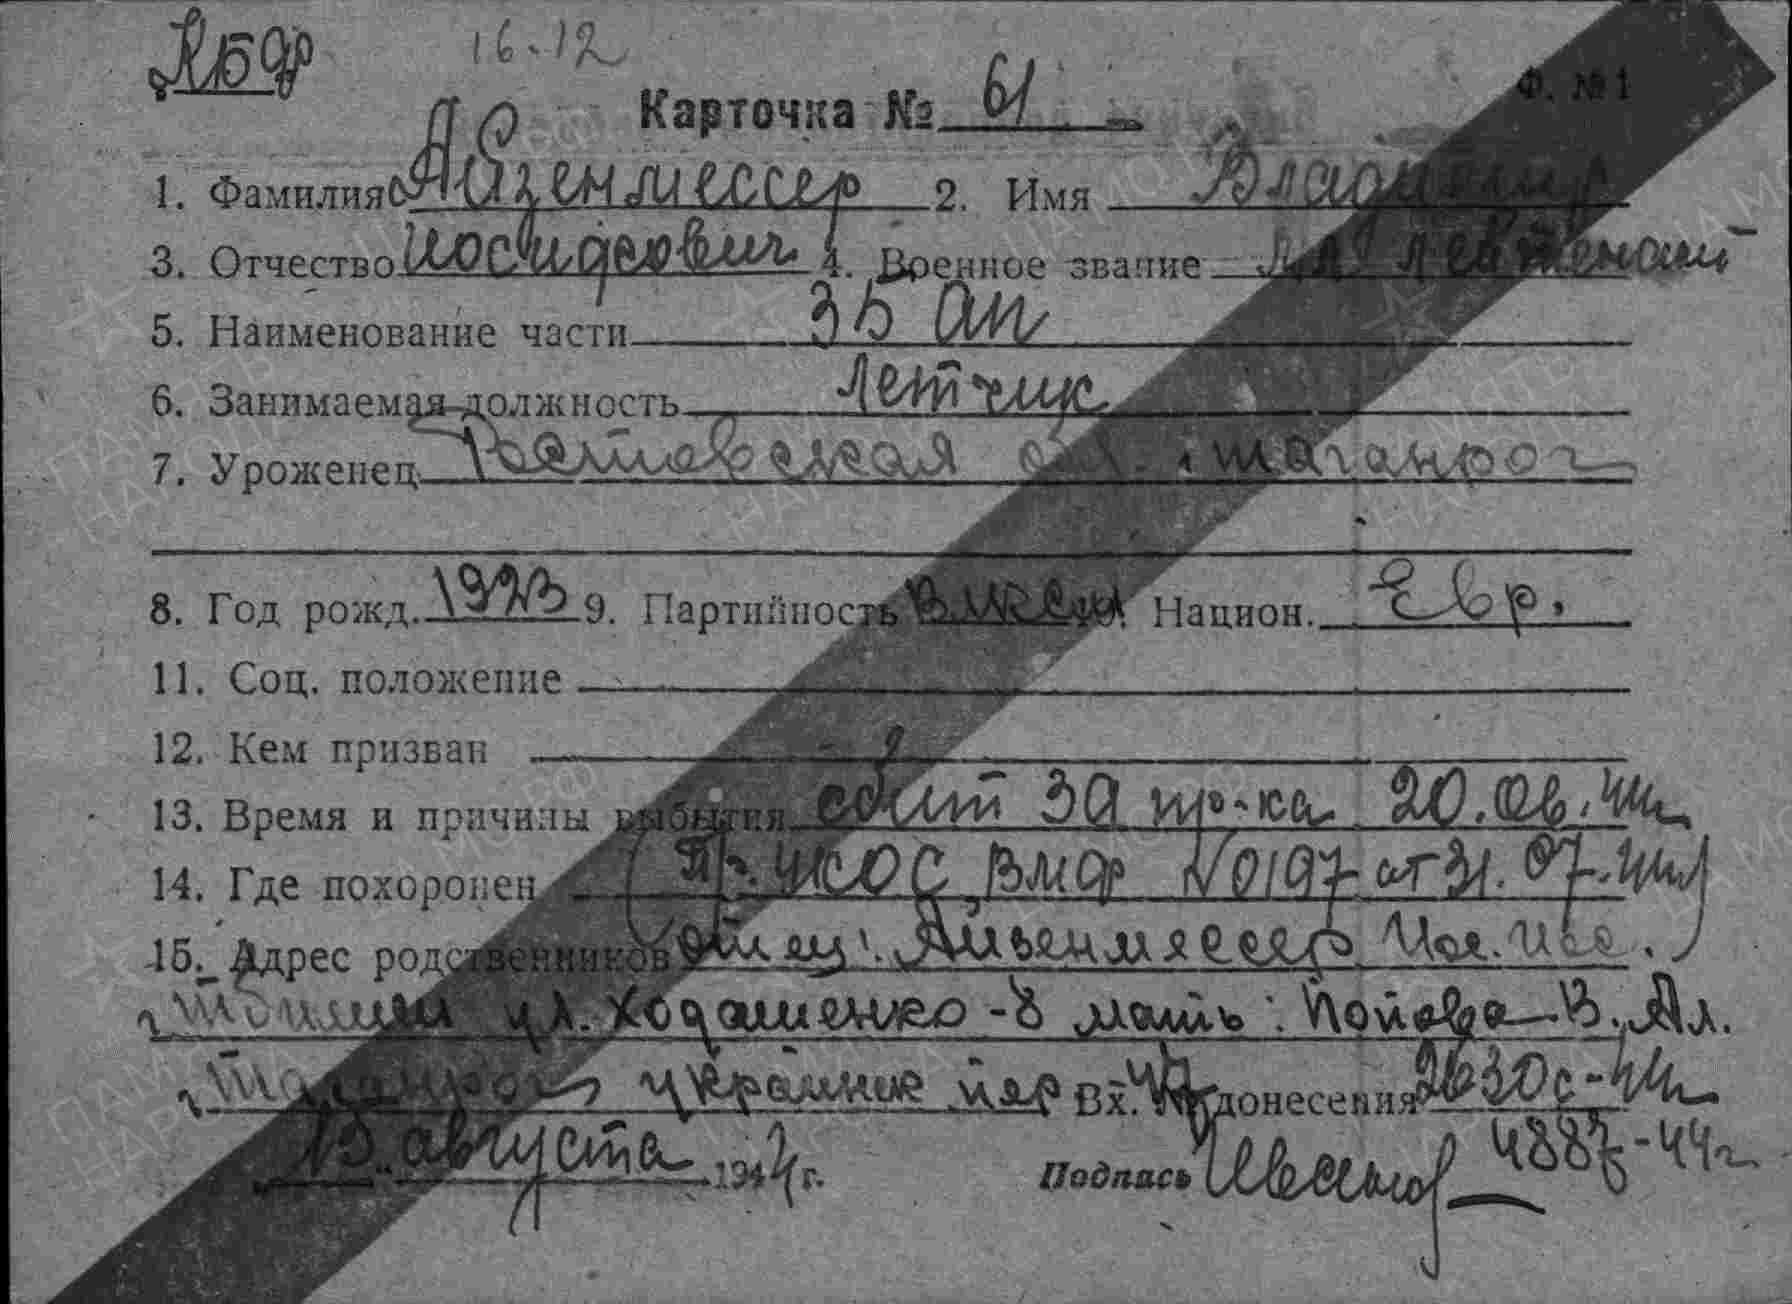 КБФ 16.12
Ф. №1
Карточка № 61
1. Фамилия Айзенмессер 2. Имя Владимир
3. Отчество Иосифович 4. Военное звание мл. лейтенант
5. Наименование части 35 ап
6. Занимаемая должность Летчик
7. Уроженец Ростовская обл. г. Таганрог
8. Год рожд. 1923 9. Партийность Национ. Евр.
11. Соц. положение
12. Кем призван
13. Время и причины выбытия сбит за пр-ка 20.06.44г.
14. Где похоронен Пр. ИСОС ВМФ №0197 от 31.07.44г
15. Адрес родственников отец: Айзенмессер Иос.
г. ул. -8 мать: Попова В. Ал.
г. Таганрог Украинск пер Вх. № донесения 2630с-44г.
15 августа 1944 г. Подпись 4887-44г